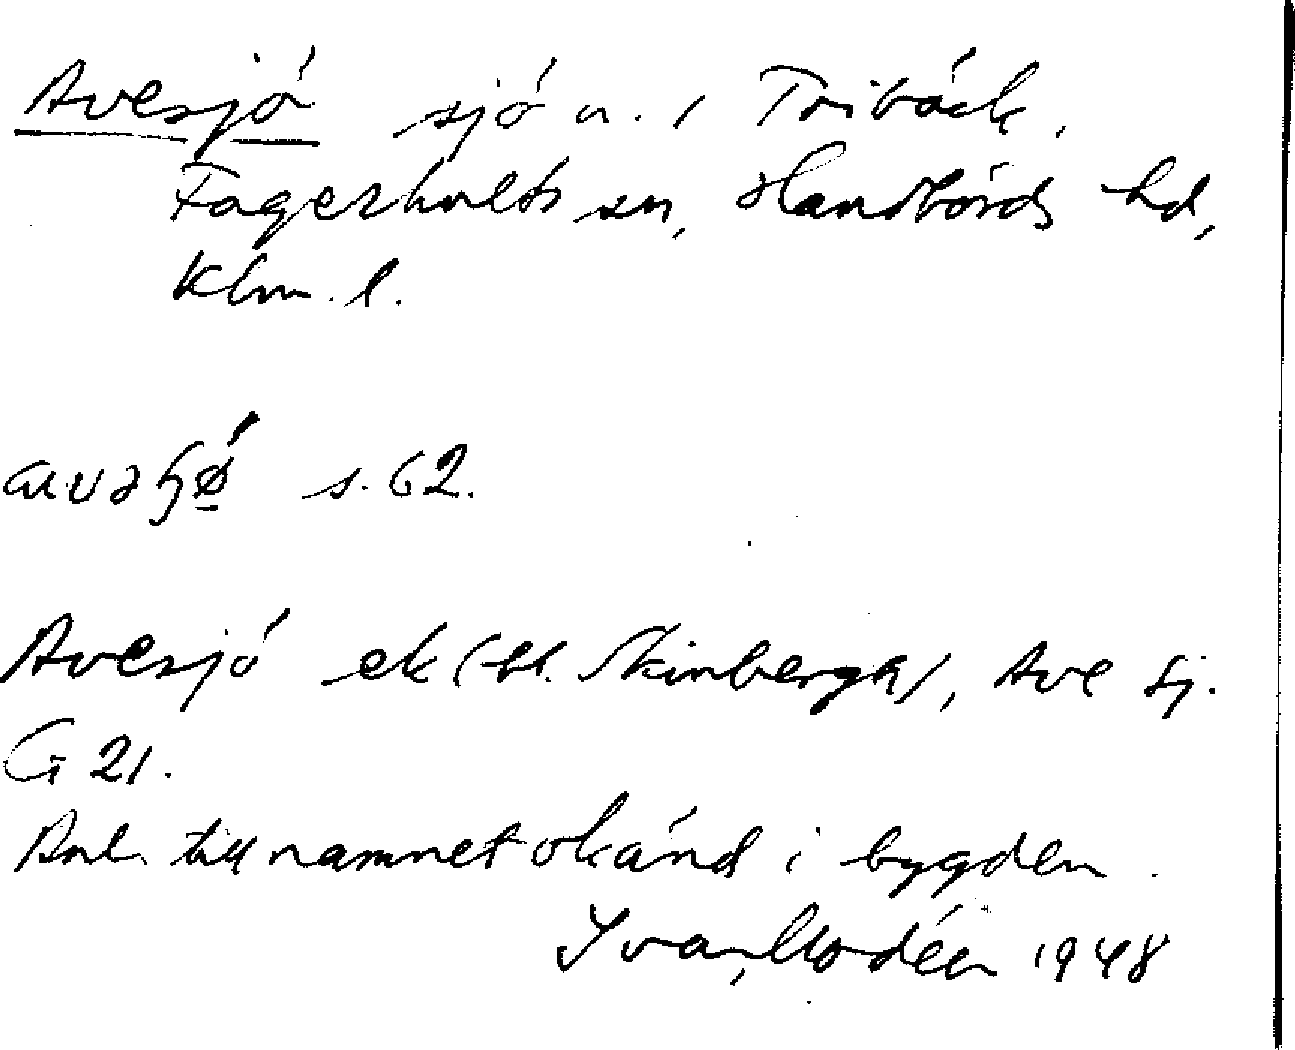 Avesjö sjö n. i Triback,
Fagerhults sn, Handbörds hd,
Klm. l.
s. 62.
Avesjö ek (bl. Skinberga), Ave Sj.
G 21.
Anl. till namnet okänd i bygden.
Ivar Modéer 1948